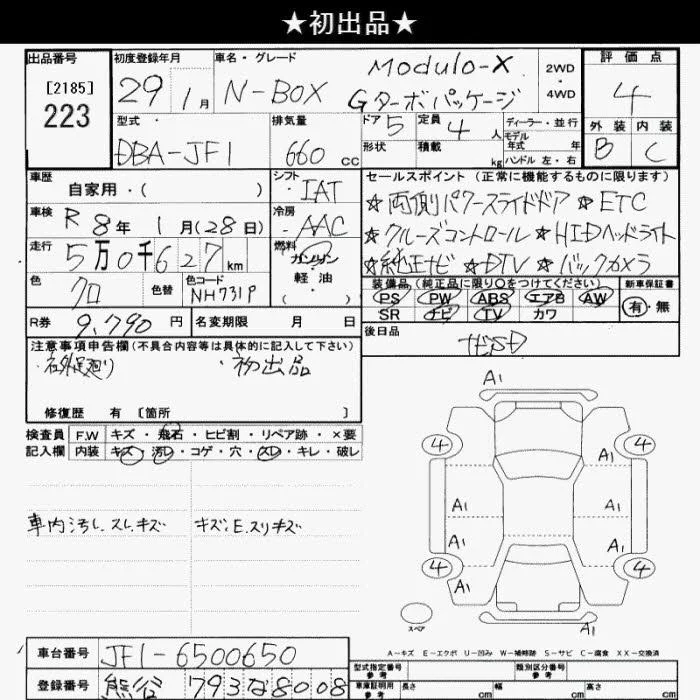 ★初出品★
出品番号 初度登録年月 車名・グレード 評価点
[2185]
223
29 1月
N-BOX Modulo-X
Gターボパッケージ
2WD
・
4WD
4
外装 内装
B C
型式 排気量 ドア 定員 ディーラー・並行
DBA-JF1 660cc 5 4人 モデル年式 年
形状 積載 kg ハンドル 左・右
車歴 シフト セールスポイント (正常に機能するものに限ります)
自家用・( ) IAT ☆両側パワースライドドア ☆ETC
車検 R8年1月(28日) 冷房 AAC ☆クルーズコントロール ☆HIDヘッドライト
走行 5万0千627km 燃料 ガソリン ☆純正ナビ ☆DTV ☆バックカメラ
軽油
・( )
色 クロ 色替 色コード NH731P
装備品(純正品に限り○をつけてください) 新車保証書
PS PW ABS エアB AW 有・無
SR ナビ TV カワ
R券 9,790円 名変期限 月 日 後日品
注意事項申告欄(不具合内容等は具体的に記入して下さい)
・初出品
修復歴 有 [箇所 ]
検査員 F.W キズ・飛石・ヒビ割・リペア跡・×要
記入欄 内装 キズ・汚レ・コゲ・穴・スレ・キレ・破レ
車内汚レ.スレ.キズ キズ.E.スリキズ
A1
4 4
A1
A1 A1
A1 A1
4 4
A1
スペア A1
A−キズ E−エクボ U−凹み W−補修跡 S−サビ C−腐食 XX−交換済
車台番号 JF1-6500650 型式指定番号 参考 類別区分番号 参考
登録番号 熊谷 793な8008 車庫証明用 参考 長さ cm 幅 cm 高さ cm